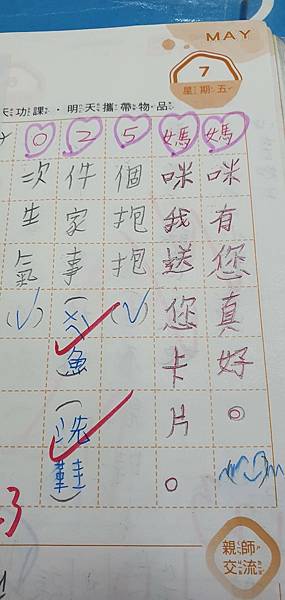 MAY
7
星期五
天功課・明天攜帶物品
媽咪有您真好。
媽咪我送您卡片。
5個抱抱(✓)
2件家事(魚)(洗鞋)
0次生氣(✓)
親師
交流